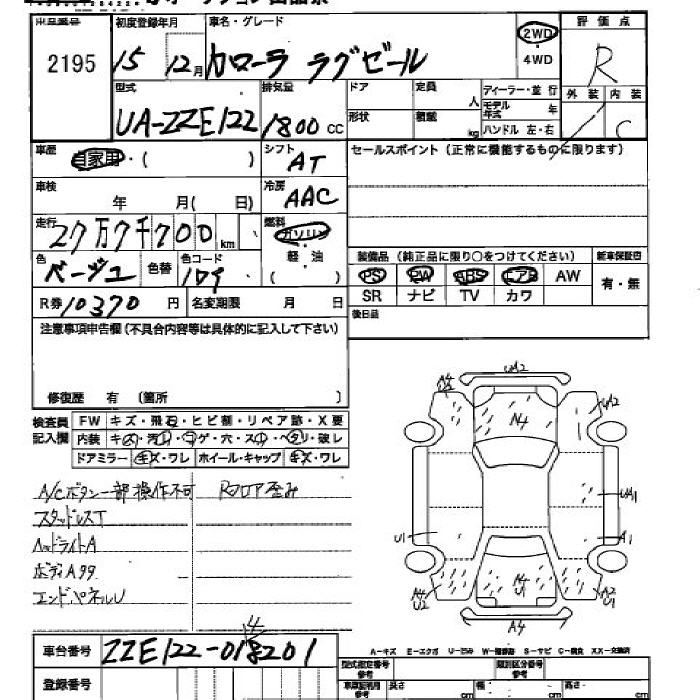 2195
初度登録年月
15 12月
車名・グレード
カローラ ラグゼール
2WD
・
4WD
評価点
R
外装 内装
C
型式
UA-ZZE122
排気量
1800 cc
ドア
定員
人
形状
積載
kg
ディーラー・並行
モデル年式 年
ハンドル 左・右
車歴
自家用・( )
シフト
AT
セールスポイント(正常に機能するものに限ります)
車検
年 月( 日)
冷房
AAC
走行
27万7千700km
燃料
ガソリン
・
軽油
( )
色
ベージュ
色替
色コード
装備品(純正品に限り○をつけてください)
新車保証書
PS PW ABS エアB AW
有・無
SR ナビ TV カワ
R券 10370 円
名変期限 月 日
後日品
注意事項申告欄(不具合内容等は具体的に記入して下さい)
修復歴 有 (箇所 )
検査員記入欄
FW キズ・飛石・ヒビ割・リペア跡・X要
内装 キズ・汚れ・コゲ・穴・スレ・ヘタリ・破レ
ドアミラー キズ・ワレ ホイール・キャップ キズ・ワレ
A/Cボタン一部操作不可 Rフロア歪み
スタッドレスT
ヘッドライトA
ボディA99
エンドパネルU
UA2
A4
UA2
UA1
U1
A1
A4
U2
A4
U1
A4
U1
A4
A-キズ E-エクボ U-凹み W-補修跡 S-サビ C-腐食 XX-交換済
車台番号
ZZE122-018201
4
型式指定番号
類別区分番号
登録番号
長さ cm 幅 cm 高さ cm